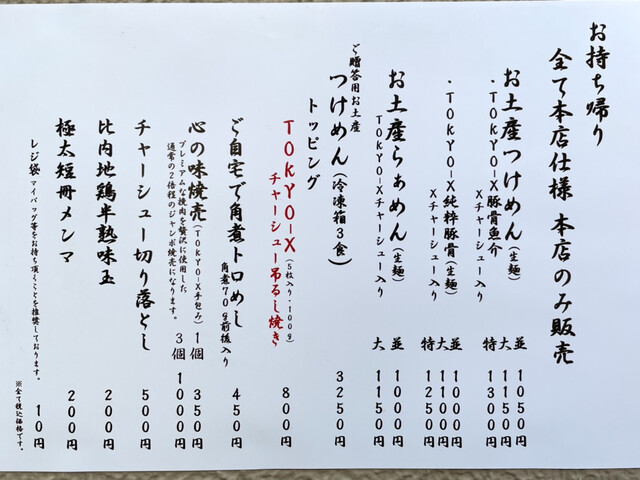 お持ち帰り
全て本店仕様 本店のみ販売
お土産つけめん(生麺)
・TOKYO-X豚骨魚介
Xチャーシュー入り
並 1050円
大 1150円
特 1300円
・TOKYO-X純粋豚骨(生麺)
Xチャーシュー入り
並 1000円
大 1100円
特 1250円
お土産らぁめん(生麺)
TOKYO-Xチャーシュー入り
並 1000円
大 1150円
ご贈答用お土産
つけめん(冷凍箱3食) 3250円
トッピング
TOKYO-X(5枚入り・100g)
チャーシュー吊るし焼き 800円
ご自宅で角煮トロめし 450円
角煮70g前後入り
心の味焼売(TOKYO-X手包み) 1個 350円
プレミアムな挽肉を贅沢に使用した 3個 1000円
通常の2倍程のジャンボ焼売になります。
チャーシュー切り落とし 500円
比内地鶏半熟味玉 200円
極太短冊メンマ 200円
レジ袋 マイバッグ等をお持ち頂くことを推奨しております。 10円
※全て税込価格です。